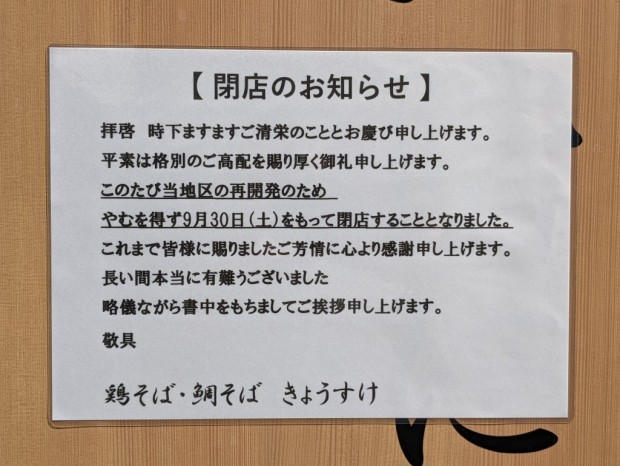 【 閉店のお知らせ 】
拝啓　時下ますますご清栄のこととお慶び申し上げます。
平素は格別のご高配を賜り厚く御礼申し上げます。
このたび当地区の再開発のため
やむを得ず9月30日(土)をもって閉店することとなりました。
これまで皆様に賜りましたご芳情に心より感謝申し上げます。
長い間本当に有難うございました
略儀ながら書中をもちましてご挨拶申し上げます。
敬具
鶏そば・鯛そば　きょうすけ